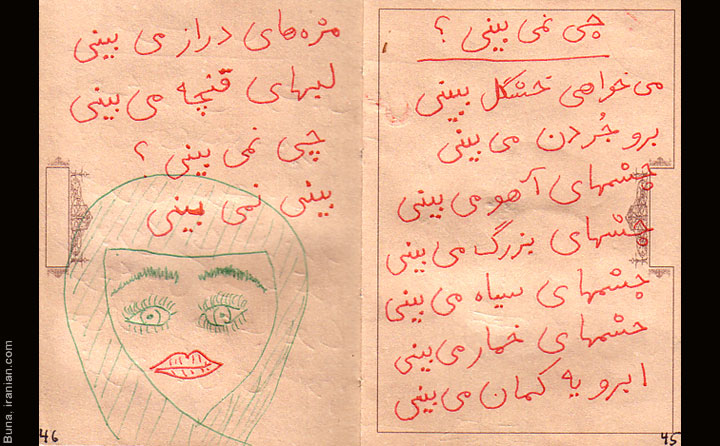 چی نمی بینی ؟
می خواهی خشگل ببینی
برو جُردن می بینی
چشمهای آهو می بینی
چشمهای بزرگ می بینی
چشمهای سیاه می بینی
چشمهای خمار می بینی
ابرو یه کمان می بینی
45
مژه های دراز می بینی
لبهای قنچه می بینی
چی نمی بینی ؟
بینی نمی بینی
46
Buna, iranian.com